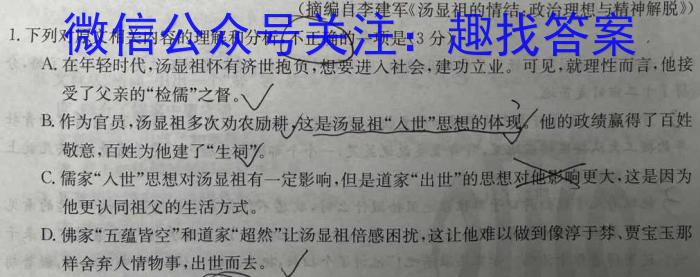 (摘编自李建军《汤显祖的情结、政治理想与精神解脱》)
微信公众号关注：趣找答案
1. 下列对原文相关内容的理解和分析,不正确的一项是(3分)
A. 在年轻时代,汤显祖怀有济世抱负,想要进入社会,建功立业。可见,就理性而言,他接
受了父亲的“检儒”之督。
B. 作为官员,汤显祖多次劝农励耕,这是汤显祖“入世”思想的体现。他的政绩赢得了百姓
敬意,百姓为他建了“生祠”。
C. 儒家“入世”思想对汤显祖有一定影响,但是道家“出世”的思想对他影响更大,这是因为
他更认同祖父的生活方式。
D. 佛家“五蕴皆空”和道家“超然”让汤显祖倍感困扰,这让他难以做到像淳于棼、贾宝玉那
样舍弃人情物事,出世而去。